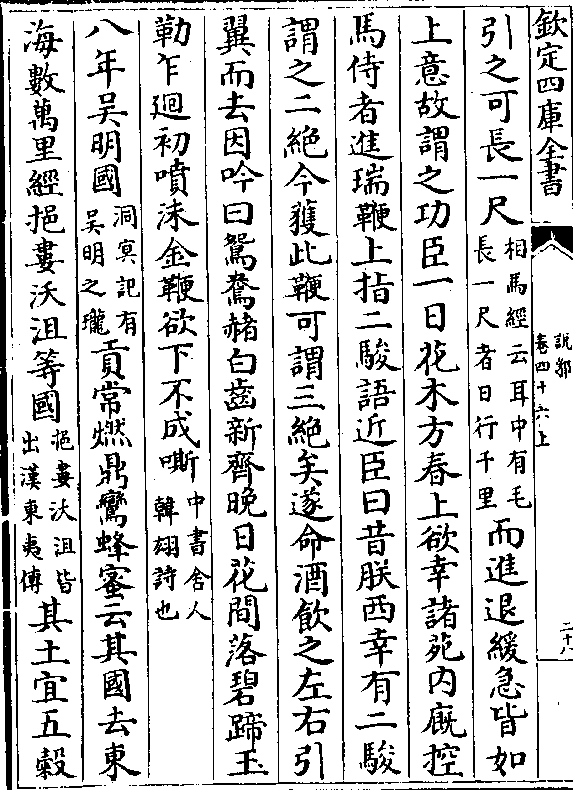 欽定四庫全書
說郛
卷四十六上
二十八
引之可長一尺相馬經云耳中有毛長一尺者日行千里而進退緩急皆如
上意故謂之功臣一日花木方春上欲幸諸苑内廐控
馬侍者進瑞鞭上指二駿語近臣曰昔朕西幸有二駿
謂之二絶今獲此鞭可謂三絶矣遂命酒飲之左右引
翼而去因吟曰鴛鴦赭白齒新齊晚日花間落碧蹄玉
勒乍迴初噴沫金鞭欲下不成嘶中書舍人韓翃詩也
八年吳明國洞冥記有吳明之瓏貢常燃鼎鸞蜂蜜云其國去東
海數萬里經挹婁沃沮等國挹婁沃沮皆出漢東夷傳其土宜五穀